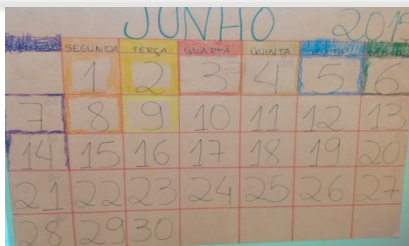 JUNHO 2015
SEGUNDA TERÇA QUARTA QUINTA
1 2 3 4 5 6
7 8 9 10 11 12 13
14 15 16 17 18 19 20
21 22 23 24 25 26 27
28 29 30